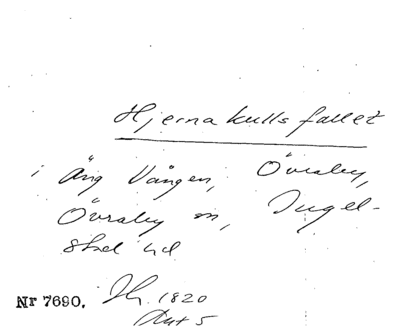 Hjernakulls fallet
i Äng Vången, Övraby,
Övraby sn, Ingel-
stad hd
Nr 7690. 1820